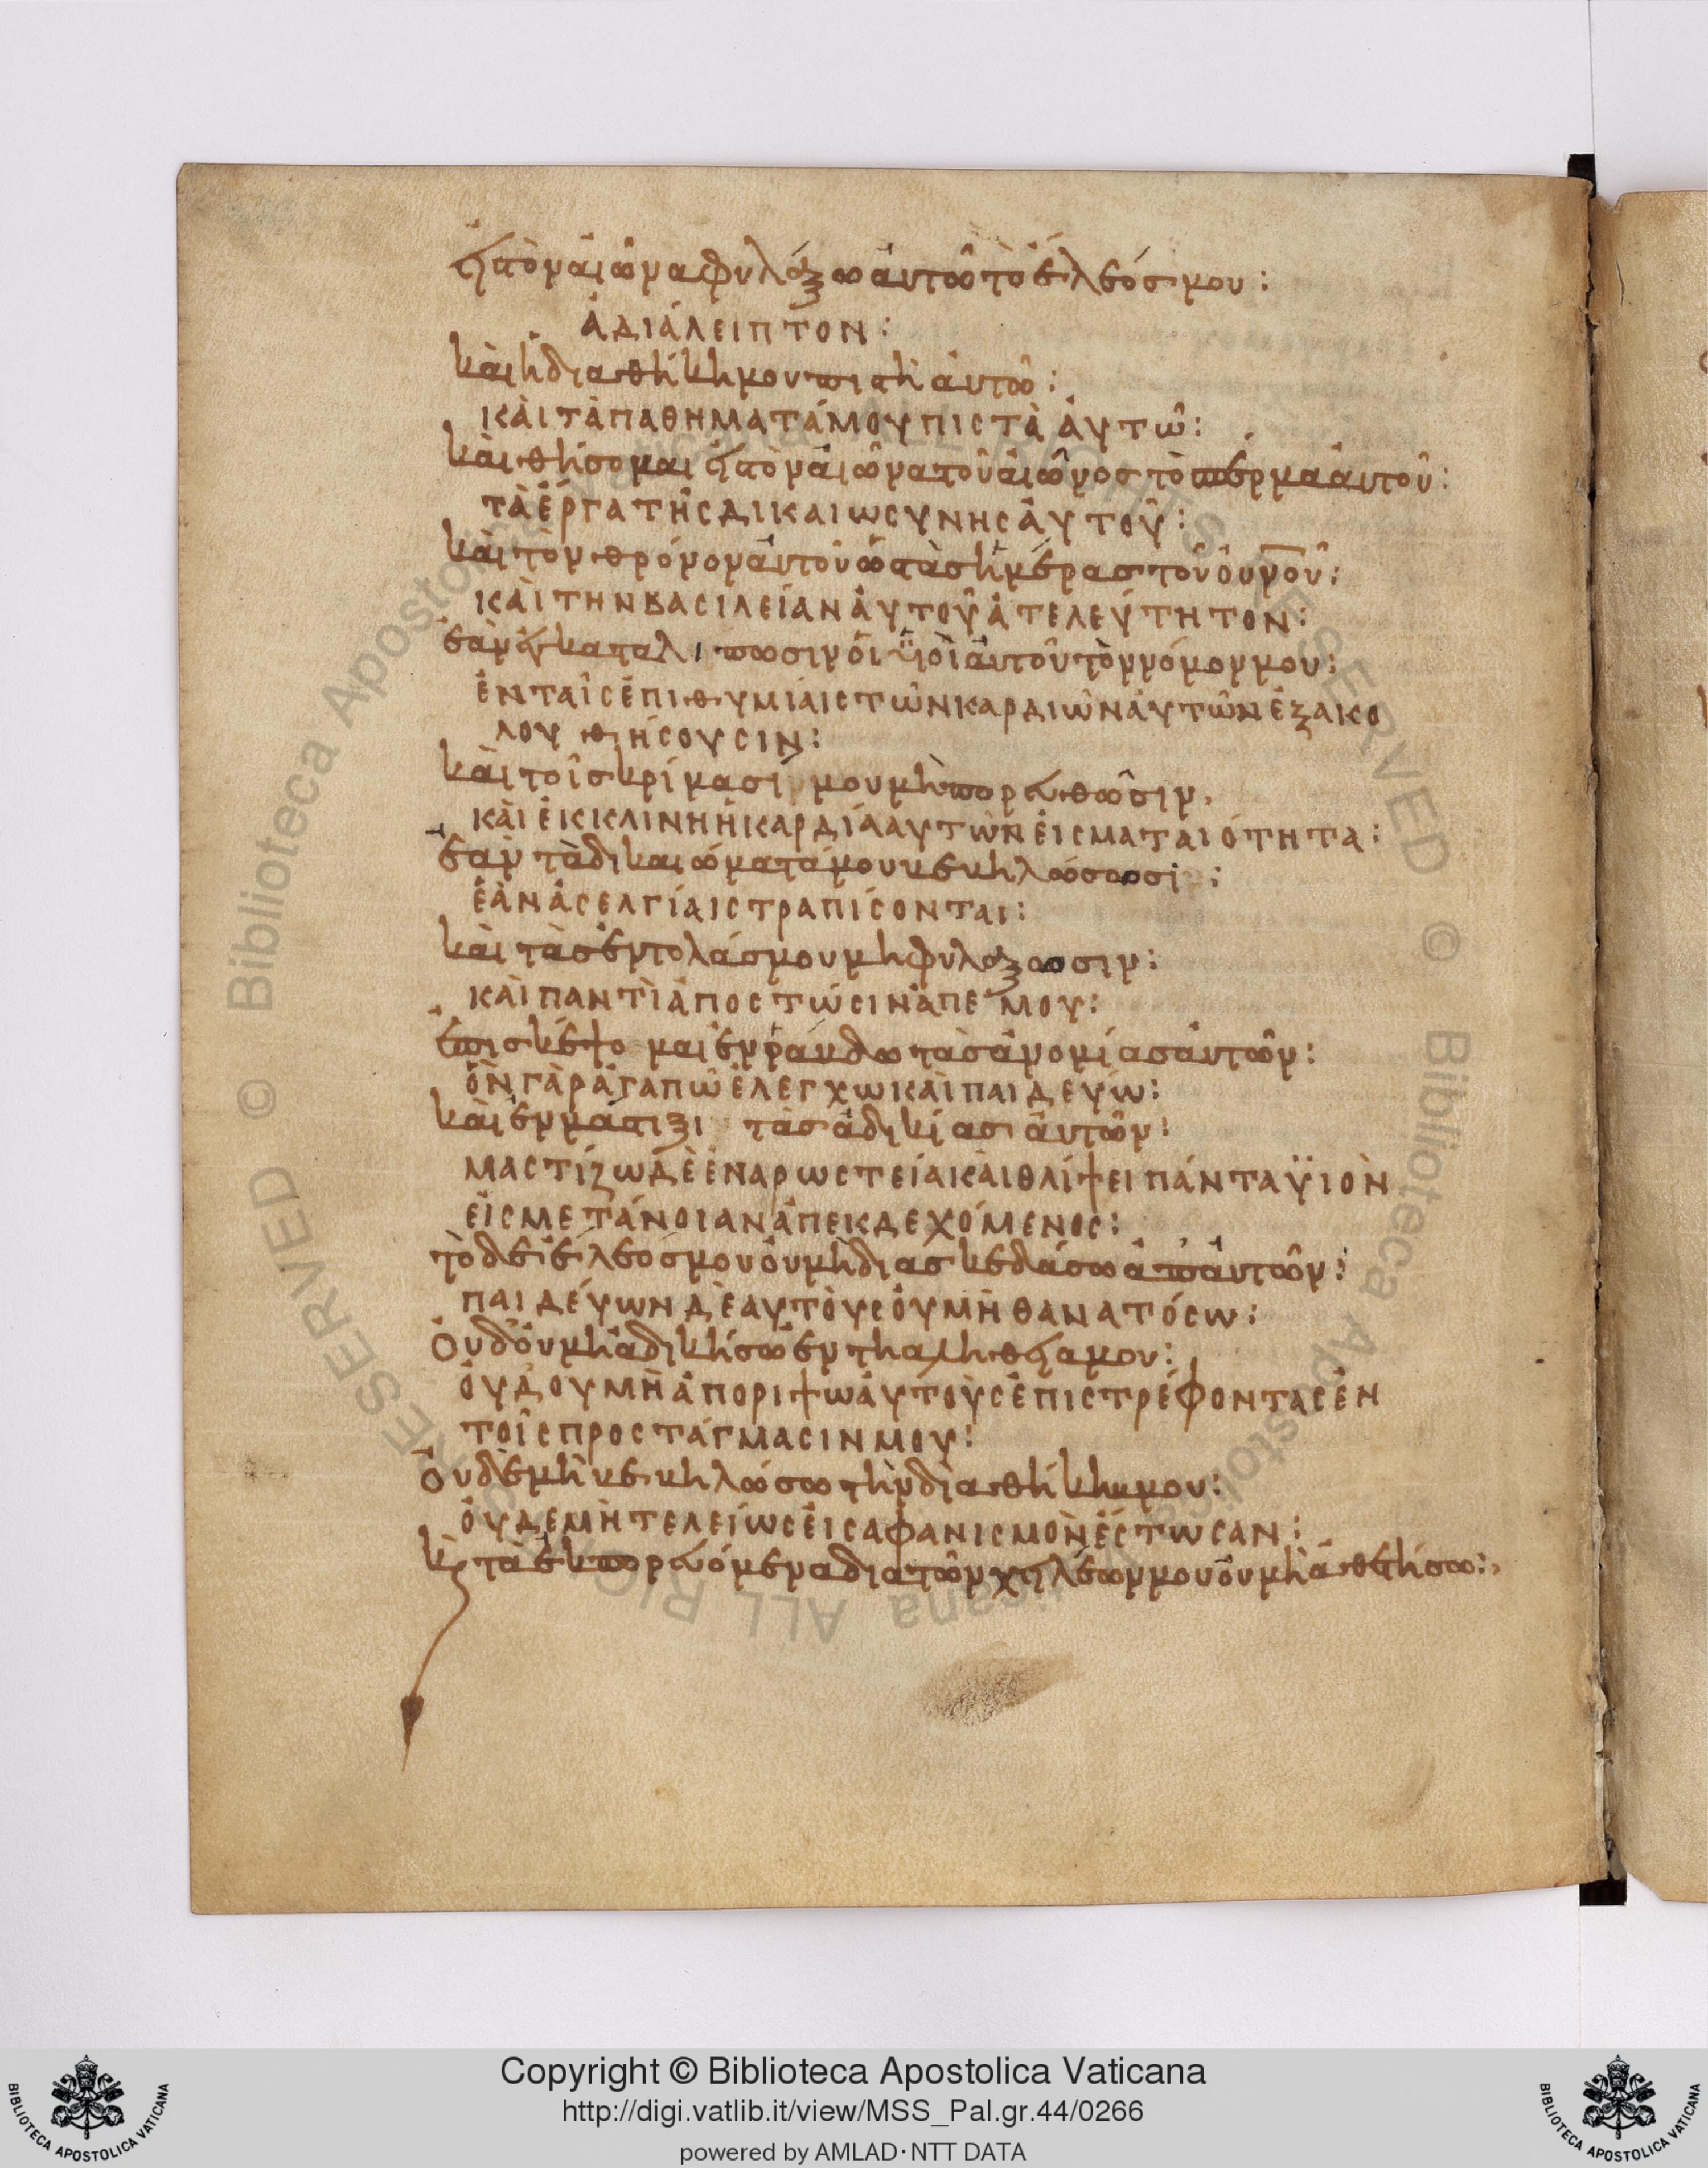 εἰς τὸν αἰῶνα φυλάξω αὐτῶ τὸ ἔλεός μου:
ἀδιάλειπτον:
καὶ ἡ διαθήκη μου πιστὴ αὐτῶ:
καὶ τὰ παθήματά μου πιστὰ ἀυτῶ:
καὶ θήσομαι εἰς τὸν αἰῶνα τοῦ αἰῶνος τὸ σπέρμα αὐτοῦ:
τὰ ἔργα τῆς δικαιωσυνης ἀυτοῦ:
καὶ τὸν θρόνον αὐτοῦ ὡς τὰς ἡμέρας τοῦ ουνοῦ:
κὰι τὴν βασιλείαν ἀυτοῦ ἀτελεύτητον:
ἐὰν ἐγκαταλίπωσιν ὁι ϋιοὶ αὐτοῦ τὸν νόμον μου:
ἐν ταῖς ἐπιθυμίαις τῶν καρδιῶν ἀυτῶν ἐξακο
λουθήσουσιν:
καὶ τοῖς κρίμασί μου μὴ πορευθῶσιν,
κὰι ἐκκλινη ἡ καρδία αυτῶν ἐις ματαιότητα:
ἐὰν τὰ δικαιώματά μου βεβηλώσωσι:
ἐὰν ἀσελγίαις τραπίσονται:
καὶ τὰς ἐντολάς μου μὴ φυλάξωσιν:
κὰι παντὶ ἀποστῶσιν ἀπ ἐμου:
ἐπισκέψομαι ἐν ράβδω τὰς ἀνομίας αὐτῶν:
ὃν γὰρ ἀγαπῶ ἐλεγχω κὰι παιδεύω:
καὶ ἐν μάστιξι τὰς ἀδικίας αὐτῶν:
μαστίζω δὲ ἐν αρωστεία κὰι θλίψει πάντα ϋιὸν
ἐις μετάνοιαν ἀπεκδεχόμενος:
τὸ δὲ ἔλεός μου οὐ μὴ διασκεδάσω ἀπ αὐτῶν:
παιδεύων δὲ αυτὸυς ὀυ μὴ θανατόσω:
Οὐδ οὐ μὴ ἀδικήσω ἐν τη αληθεία μου:
ὀυδ ου μὴ ἀποριψω ἀυτοὺς ἐπιστρέφοντας ἐν
τοῖς προστάγμασιν μου:
Οὐδὲ μὴ βεβηλώσω τὴν διαθήκην μου:
ὀυδε μὴ τελείως ἐις αφανισμὸν ἔστωσαν:
κ τὰ ἐκπορευόμενα δια τῶν χειλέων μου οὐ μὴ ἀθετήσω:
Copyright © Biblioteca Apostolica Vaticana
http://digi.vatlib.it/view/MSS_Pal.gr.44/0266
powered by AMLAD·NTT DATA